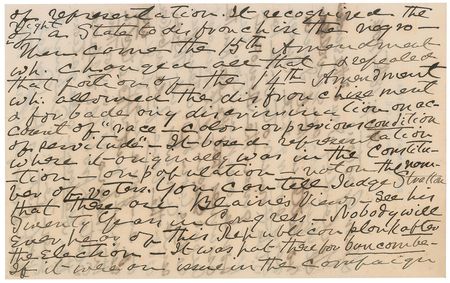 of representation. It recognized the
right of a State to disfranchise the negro —
Then came the 15th Amendment
wh. changed all that — repealed
that portion of the 14th Amendment
wh. allowed the disfranchisement
& forbade any discrimination on ac-
count of "race — color — or previous condition
of servitude" — It based representation
where it originally was in the Constitu-
tion — on population — not on the num-
ber of voters. You can tell Judge Stratton
that these are Blaine's views — See his
Twenty Years in Congress — Nobody will
ever hear of this Republican plank after
the Election — It was put there for buncombe —
If it were an issue in the campaign